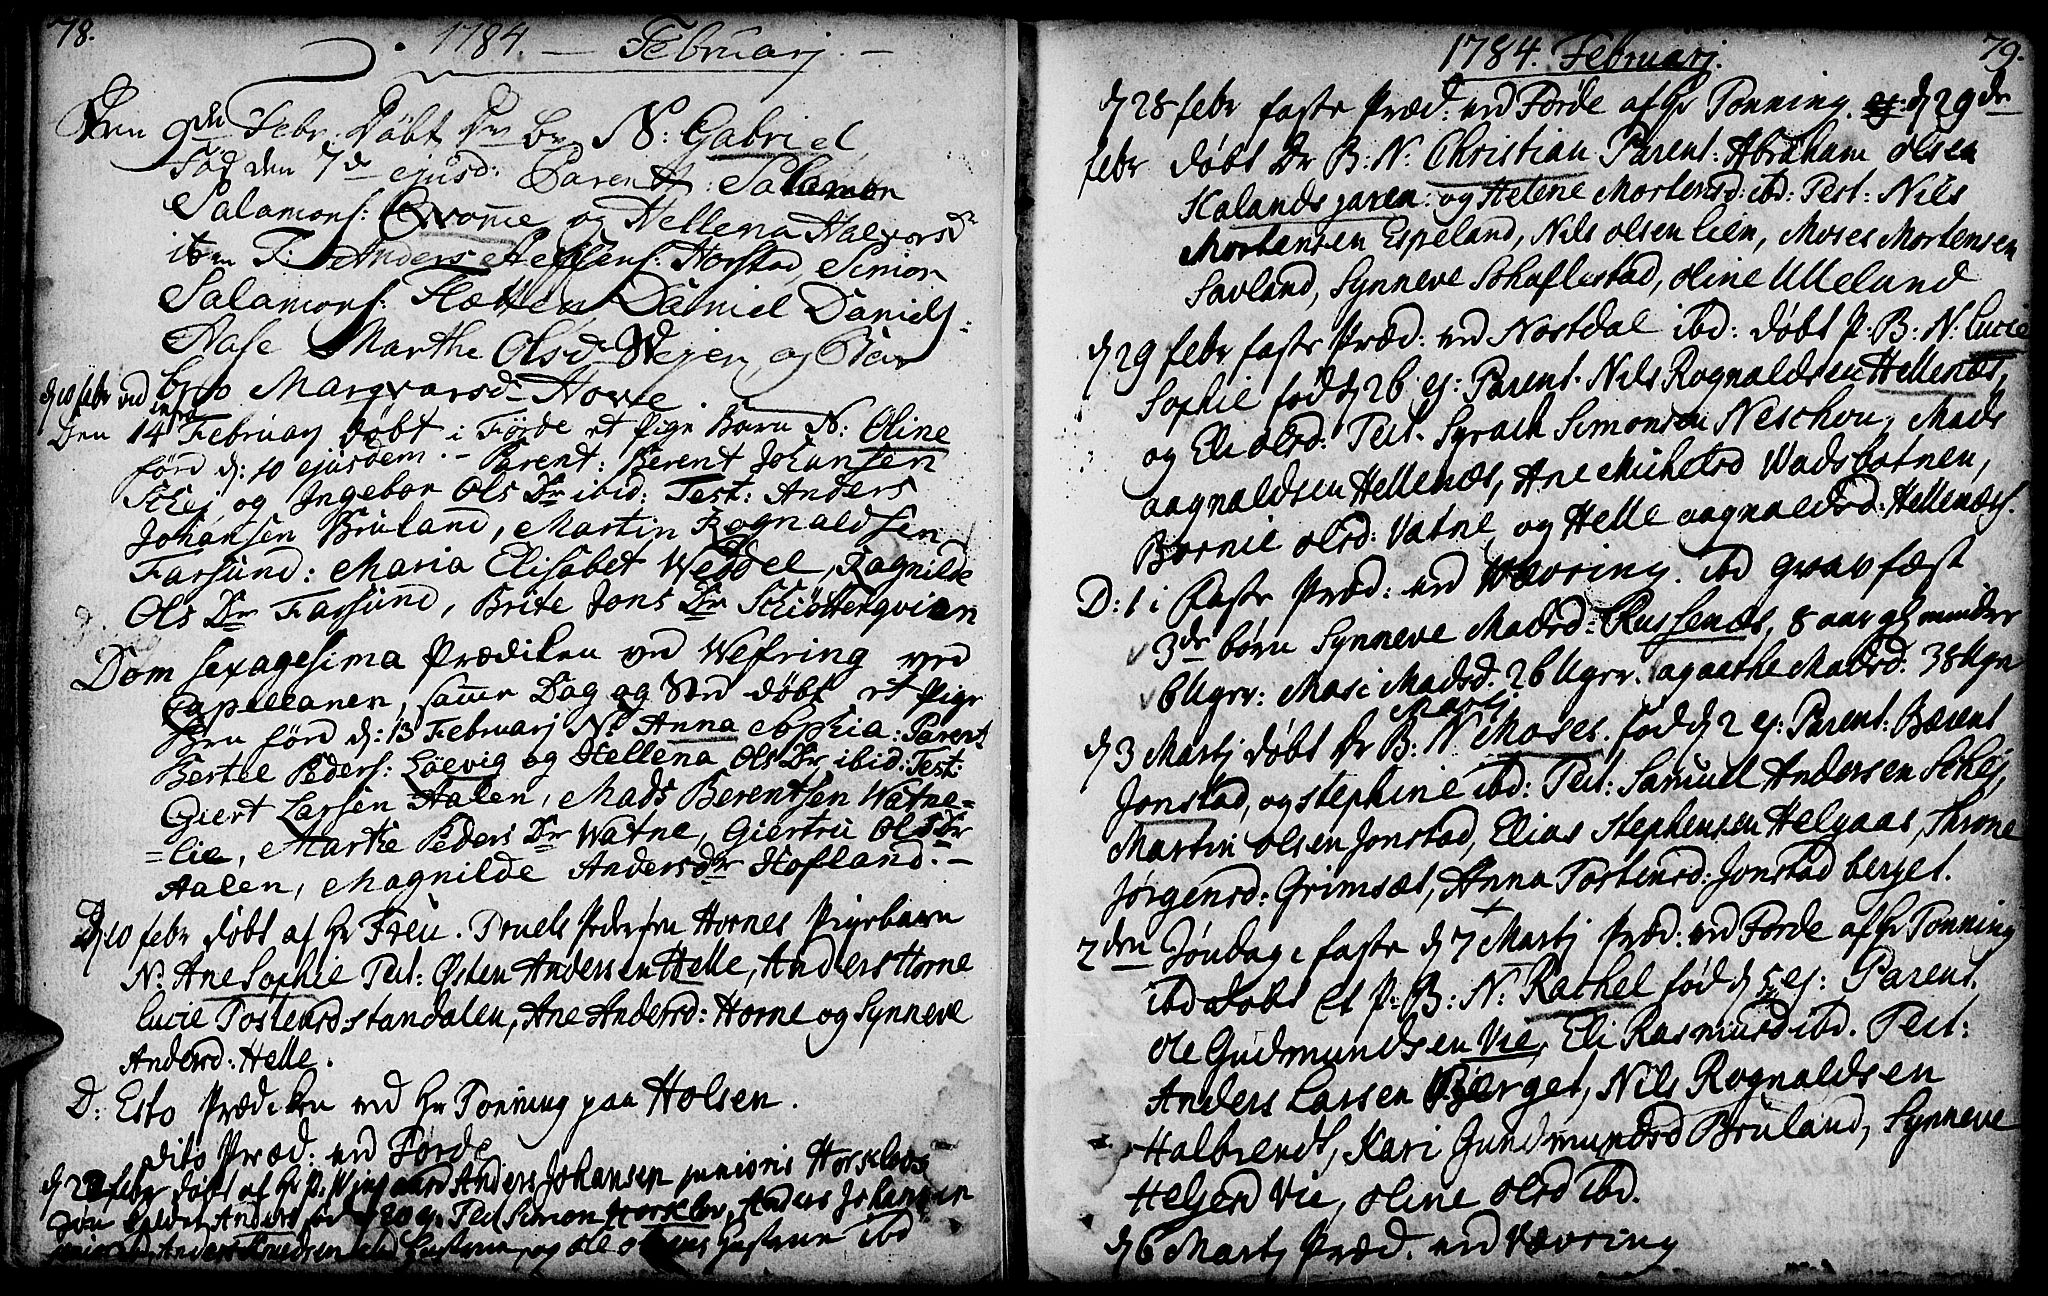 78.
1784. — Februarj. —
Den 9de Febr. Døbt Dr. Br. N: Gabriel
Fød den 7de ejusd: Parent: Salamon
Salamons: og Hellena Halvorsdr
T: Anders Horstad, Simon
Salamons: Slætten Daniel Daniels:
Nase Marthe Olsdr Wejen og
Margvarsdr Hovie.
d 10 febr ved
infra
Den 14 Februarj døbt i Förde et Pige Barn N: Oline
førd d: 10 ejusdem. – Parent: Berent Johansen
Schej og Ingebor Ols Dr ibid: Test: Anders
Johansen Bruland, Martin Rognaldsen
Farsund: Maria Elisabet Weddel, Ragnilde
Ols Dr Farsund, Brite Jons Dr
Dom sexagesima Prædiken ved Wefring ved
Capellanen, samme Dag og Sted døbt et Pige
Brn førd d: 13 Februarj N: Anna Sophia: Parent
Bertel Peders: Løevig og Hellena Ols Dr ibid: Test:
Giert Larsen Aalen, Mads Berentsen Watne=
=lie, Marthe Peders Dr Watne, Giertru Ols Dr
Aalen, Magnilde Andersdr Hofland. —
D 10 febr døbt af Hr Freu. Truels Pedersen Hornes Pigebarn
N. Ane Sophie Test: Østen Anderssen Helle, Anders Horne
Lucie Tostensd standalen, Ane Andersd: Horne og Synneve
Andersd: Helle.
D: Esto Prædiken ved Hr Tonning paa Holsen.
dito Præd: ved Førde
d 22 febr døbt af Hr P. Anders Johansen junioris Horsklovs
Søn kaldet Anders fød Test Simon Horsklov, Anders Johansen
junior ibd, Anders Knudsen og Ole ibd
1784. Februarj. 79.
d 28 febr faste Præd: ved Førde af Hr Tonning. ej: d 29de
febr døbt Dr B: N: Christian Parent: Abraham olsen
Kalandsjaren: og Helene Mortensd: ibd: Test: Nils
Mortensen Espeland, Nils olsen Lien, Moses Mortensen
Savland, Synneve Schaflestad, oline Ulleland
d 29 febr faste Præd: ved Nostdal ibd: døbt P. B: N: Lucie
Sophie fød d 26 ej: Parent. Nils Rognaldsen Hellenæs,
og Eli olsd: Test. Syrach Simonsen Neschou, Mads
aagnaldsen Hellenæs, Ane Michelsd Vadsbotnen,
Bornie olsd: Vatne, og Helle aagnaldsd: Hellenæs.
D: 1 i Faste Præd: ved Wævring. ibd gravfæst
3de børn Synneve Madsd: Russenæs, 8 aar gl minder
6 Uger: Masi Madsd. 26 Uger. agaathe Madsd: 38 Ugr
d 3 Martj døbt Dr B: N Moses. fød d 2 ej: Martj Parent: Bærent
Jonstad, og stephine ibd: Test: Samuel Andersen Schej,
Martin olsen Jonstad, Elias Stephensen Helgaas, Throne
Jørgensd: Grimsæt, Anna Tostensd: Jonstad berget.
2den Søndag i faste d 7 Martj Præd: ved Førde af Hr Tonning
ibd døbt et P: B: N: Rachel fød d 5 ej: Parent.
Ole Gudmundsen Vie, Eli Rasmusd ibd. Test:
Anders Larsen Bierget, Nils Rognaldsen
Halbrendt, Kari Gundmundsd Bruland, Synneve
Helgesd Vie, oline olsd ibd.
d 6 Martj Præd. ved Vævring